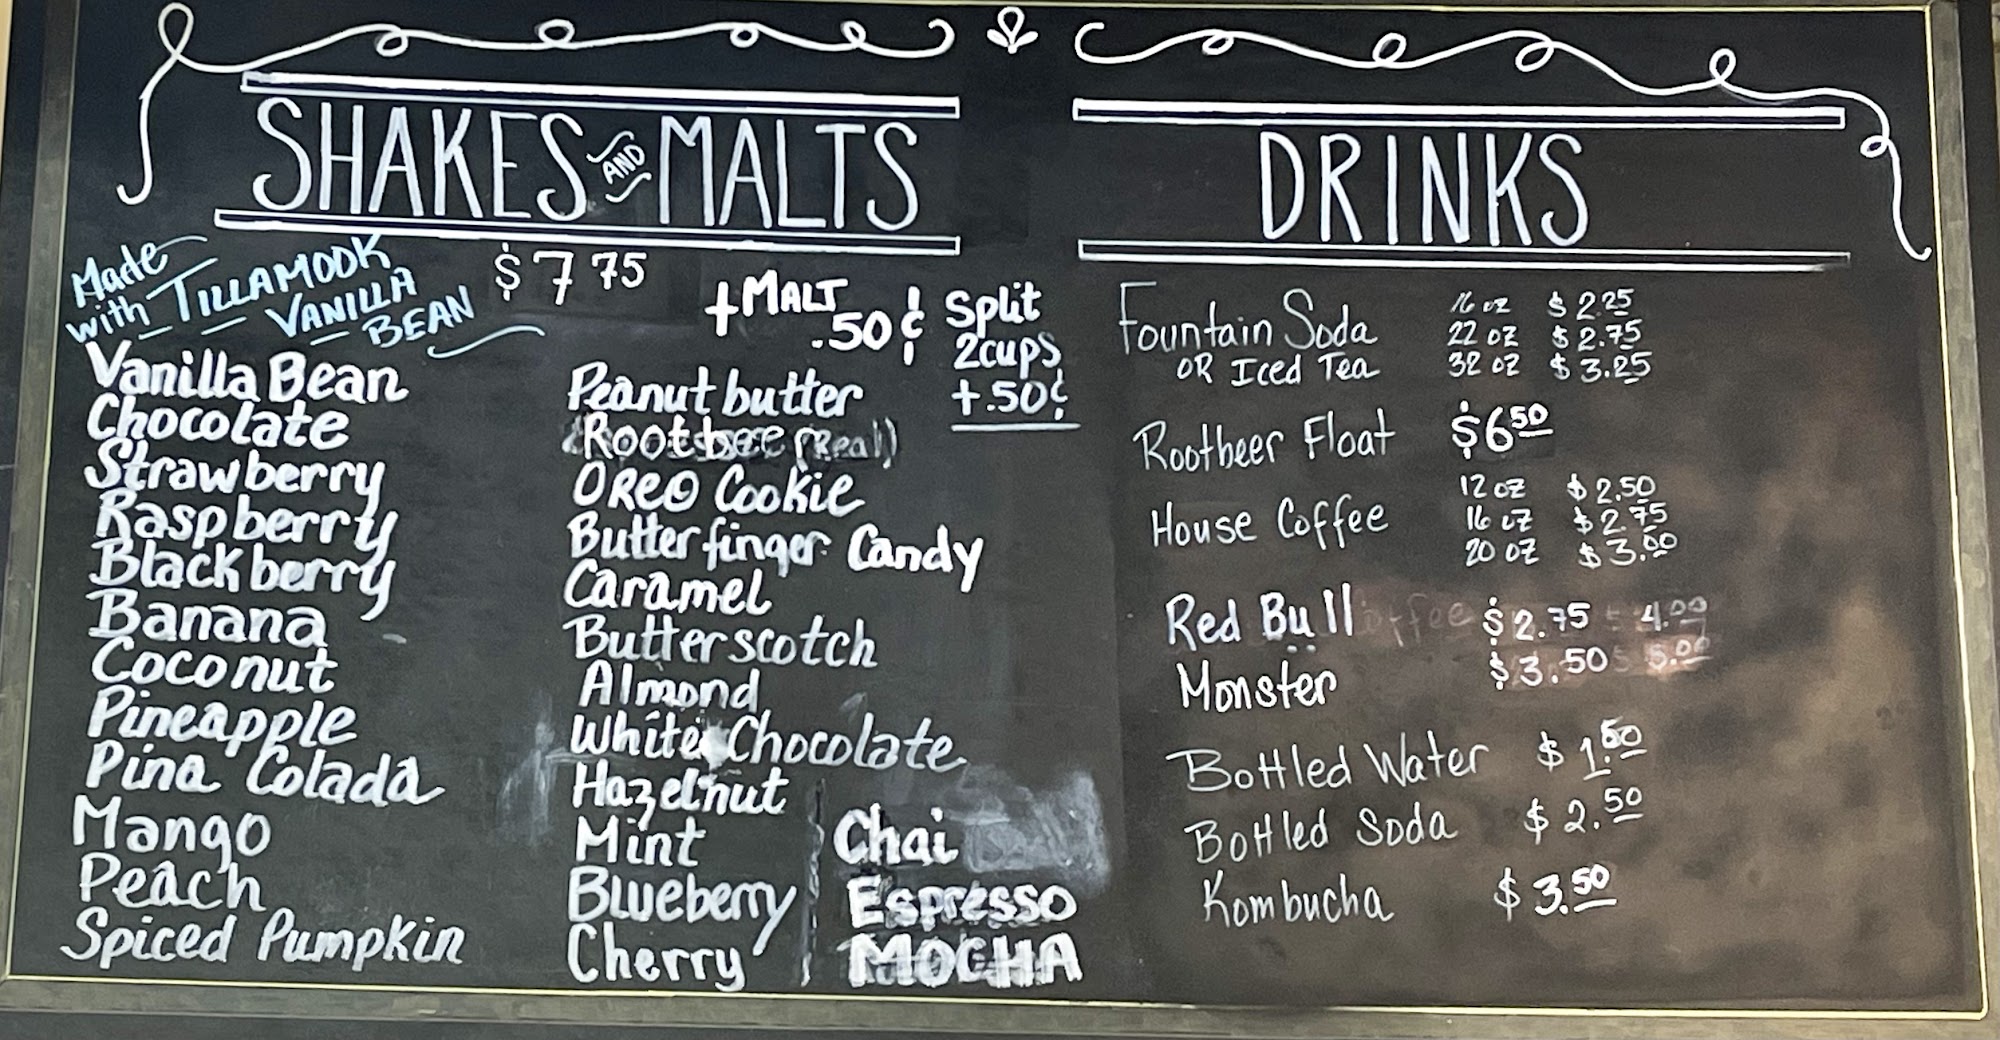 SHAKES AND MALTS
Made with TILLAMOOK VANILLA BEAN
$7.75
+ MALT .50¢
Split
2 cups
+.50¢
Vanilla Bean
Chocolate
Strawberry
Raspberry
Blackberry
Banana
Coconut
Pineapple
Pina Colada
Mango
Peach
Spiced Pumpkin
Peanut butter
Rootbeer (Real)
OREO Cookie
Butterfinger Candy
Caramel
Butterscotch
Almond
White Chocolate
Hazelnut
Mint
Blueberry
Cherry
Chai
Espresso
MOCHA
DRINKS
Fountain Soda
OR Iced Tea
16 oz $2.25
22 oz $2.75
32 oz $3.25
Rootbeer Float $6.50
House Coffee
12 oz $2.50
16 oz $2.75
20 oz $3.00
Red Bull $2.75 4.00
Monster $3.50 5.00
Bottled Water $1.50
Bottled Soda $2.50
Kombucha $3.50